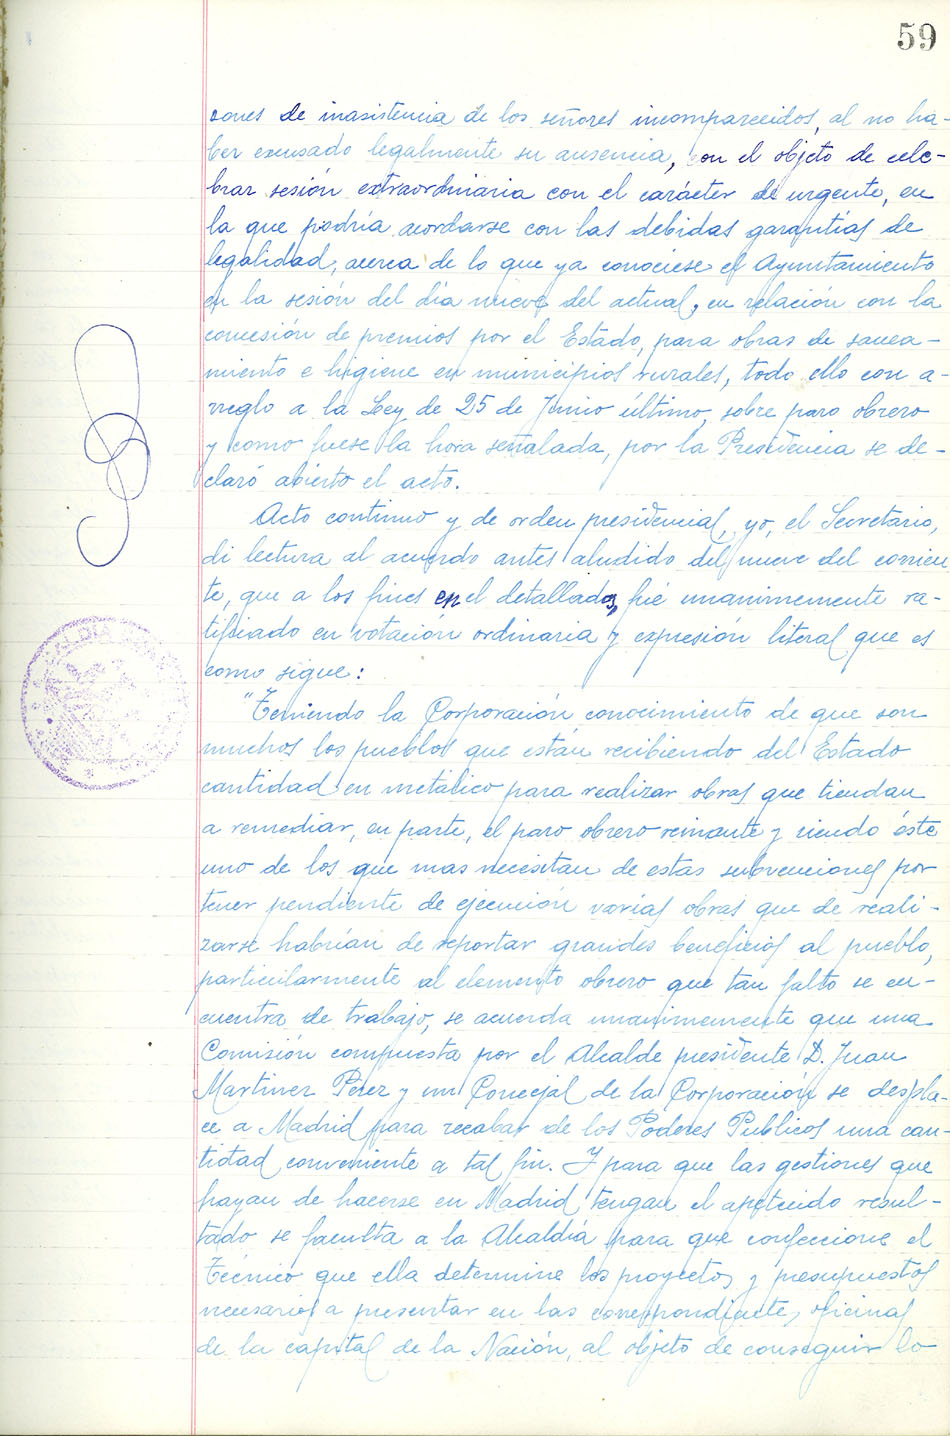 59
zones de inasistencia de los señores incomparecidos, al no ha-
ber excusado legalmente su ausencia, con el objeto de cele-
brar sesión extraordinaria con el carácter de urgente, en
la que podría acordarse con las debidas garantías de
legalidad, acerca de lo que ya conociese el Ayuntamiento
en la sesión del día nueve del actual, en relación con la
concesión de premios por el Estado, para obras de sanea-
miento e higiene en municipios rurales, todo ello con a-
rreglo a la Ley de 25 de Junio último, sobre paro obrero
y como fuese la hora señalada, por la Presidencia se de-
claró abierto el acto.
Acto continuo y de orden presidencial, yo, el Secretario,
di lectura al acuerdo antes aludido del nueve del corrien
te, que a los fines en el detallados, fué unanimemente ra-
tificado en votación ordinaria y expresión literal que es
como sigue:
"Teniendo la Corporación conocimiento de que son
muchos los pueblos que están recibiendo del Estado
cantidad en metálico para realizar obras que tiendan
a remediar, en parte, el paro obrero reinante y siendo éste
uno de los que mas necesitan de estas subvenciones por
tener pendiente de ejecución varias obras que de reali-
zarse habrían de reportar grandes beneficios al pueblo,
particularmente al elemento obrero que tan falto se en-
cuentra de trabajo, se acuerda unanimemente que una
Comisión compuesta por el Alcalde presidente D. Juan
Martinez Pérez y un Concejal de la Corporación se despla-
ce a Madrid para recabar de los Poderes Publicos una can-
tidad conveniente a tal fin. Y para que las gestiones que
hayan de hacerse en Madrid tengan el apetecido resul-
tado se faculta a la Alcaldía para que confeccione el
Técnico que ella determine los proyectos y presupuestos
necesarios a presentar en las correspondientes oficinas
de la capital de la Nación, al objeto de conseguir lo
ALCALDÍA